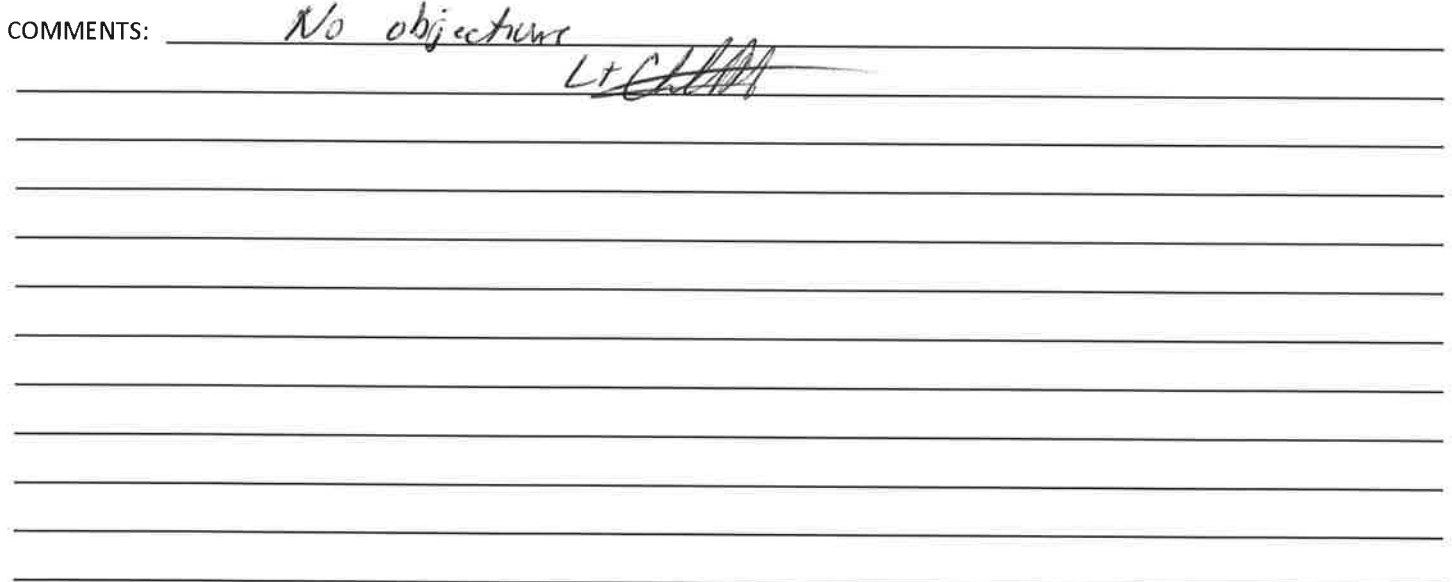 COMMENTS: No objections
Lt